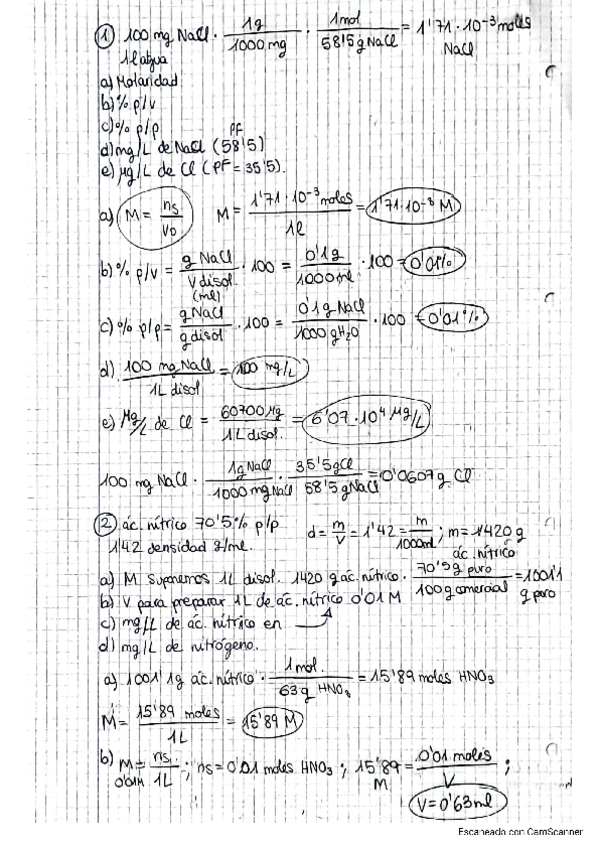 ① 100 mg NaCl · 1g / 1000 mg · 1mol / 58'5 g NaCl = 1'71 · 10⁻³ moles NaCl
1l agua
a) Molaridad
b) % p/v
c) % p/p
d) mg/L de NaCl (PF 58'5)
e) µg/L de Cl (PF = 35'5).
a) M = ns / VD M = 1'71 · 10⁻³ moles / 1l = 1'71·10⁻³ M
b) % p/v = g NaCl / V disol. (ml) · 100 = 0'1g / 1000 ml · 100 = 0'01%
c) % p/p = g NaCl / g disol · 100 = 0'1 g NaCl / 1000 g H₂O · 100 = 0'01%
d) 100 mg NaCl / 1L disol = 100 mg/L
e) µg/L de Cl = 60700 µg / 1L disol. = 6'07 · 10⁴ µg/L
100 mg NaCl · 1g NaCl / 1000 mg NaCl · 35'5 g Cl / 58'5 g NaCl = 0'0607 g Cl
② ác. nítrico 70'5% p/p d = m / V = 1'42 = m / 1000ml ; m = 1420 g ác. nítrico
1'42 densidad g/ml.
a) M suponemos 1L disol. 1420 g ác. nítrico · 70'5 g puro / 100 g comercial = 1001'1 g puro
b) V para preparar 1L de ác. nítrico 0'01 M
c) mg/L de ác. nítrico en
d) mg/L de nitrógeno.
a) 1001'1g ác. nítrico · 1 mol. / 63 g HNO₃ = 15'89 moles HNO₃
M = 15'89 moles / 1L = 15'89 M
b) M = ns. / 1L ; ns = 0'01 moles HNO₃ ; 15'89 M = 0'01 moles / V ;
0'01M
V = 0'63 ml
Escaneado con CamScanner